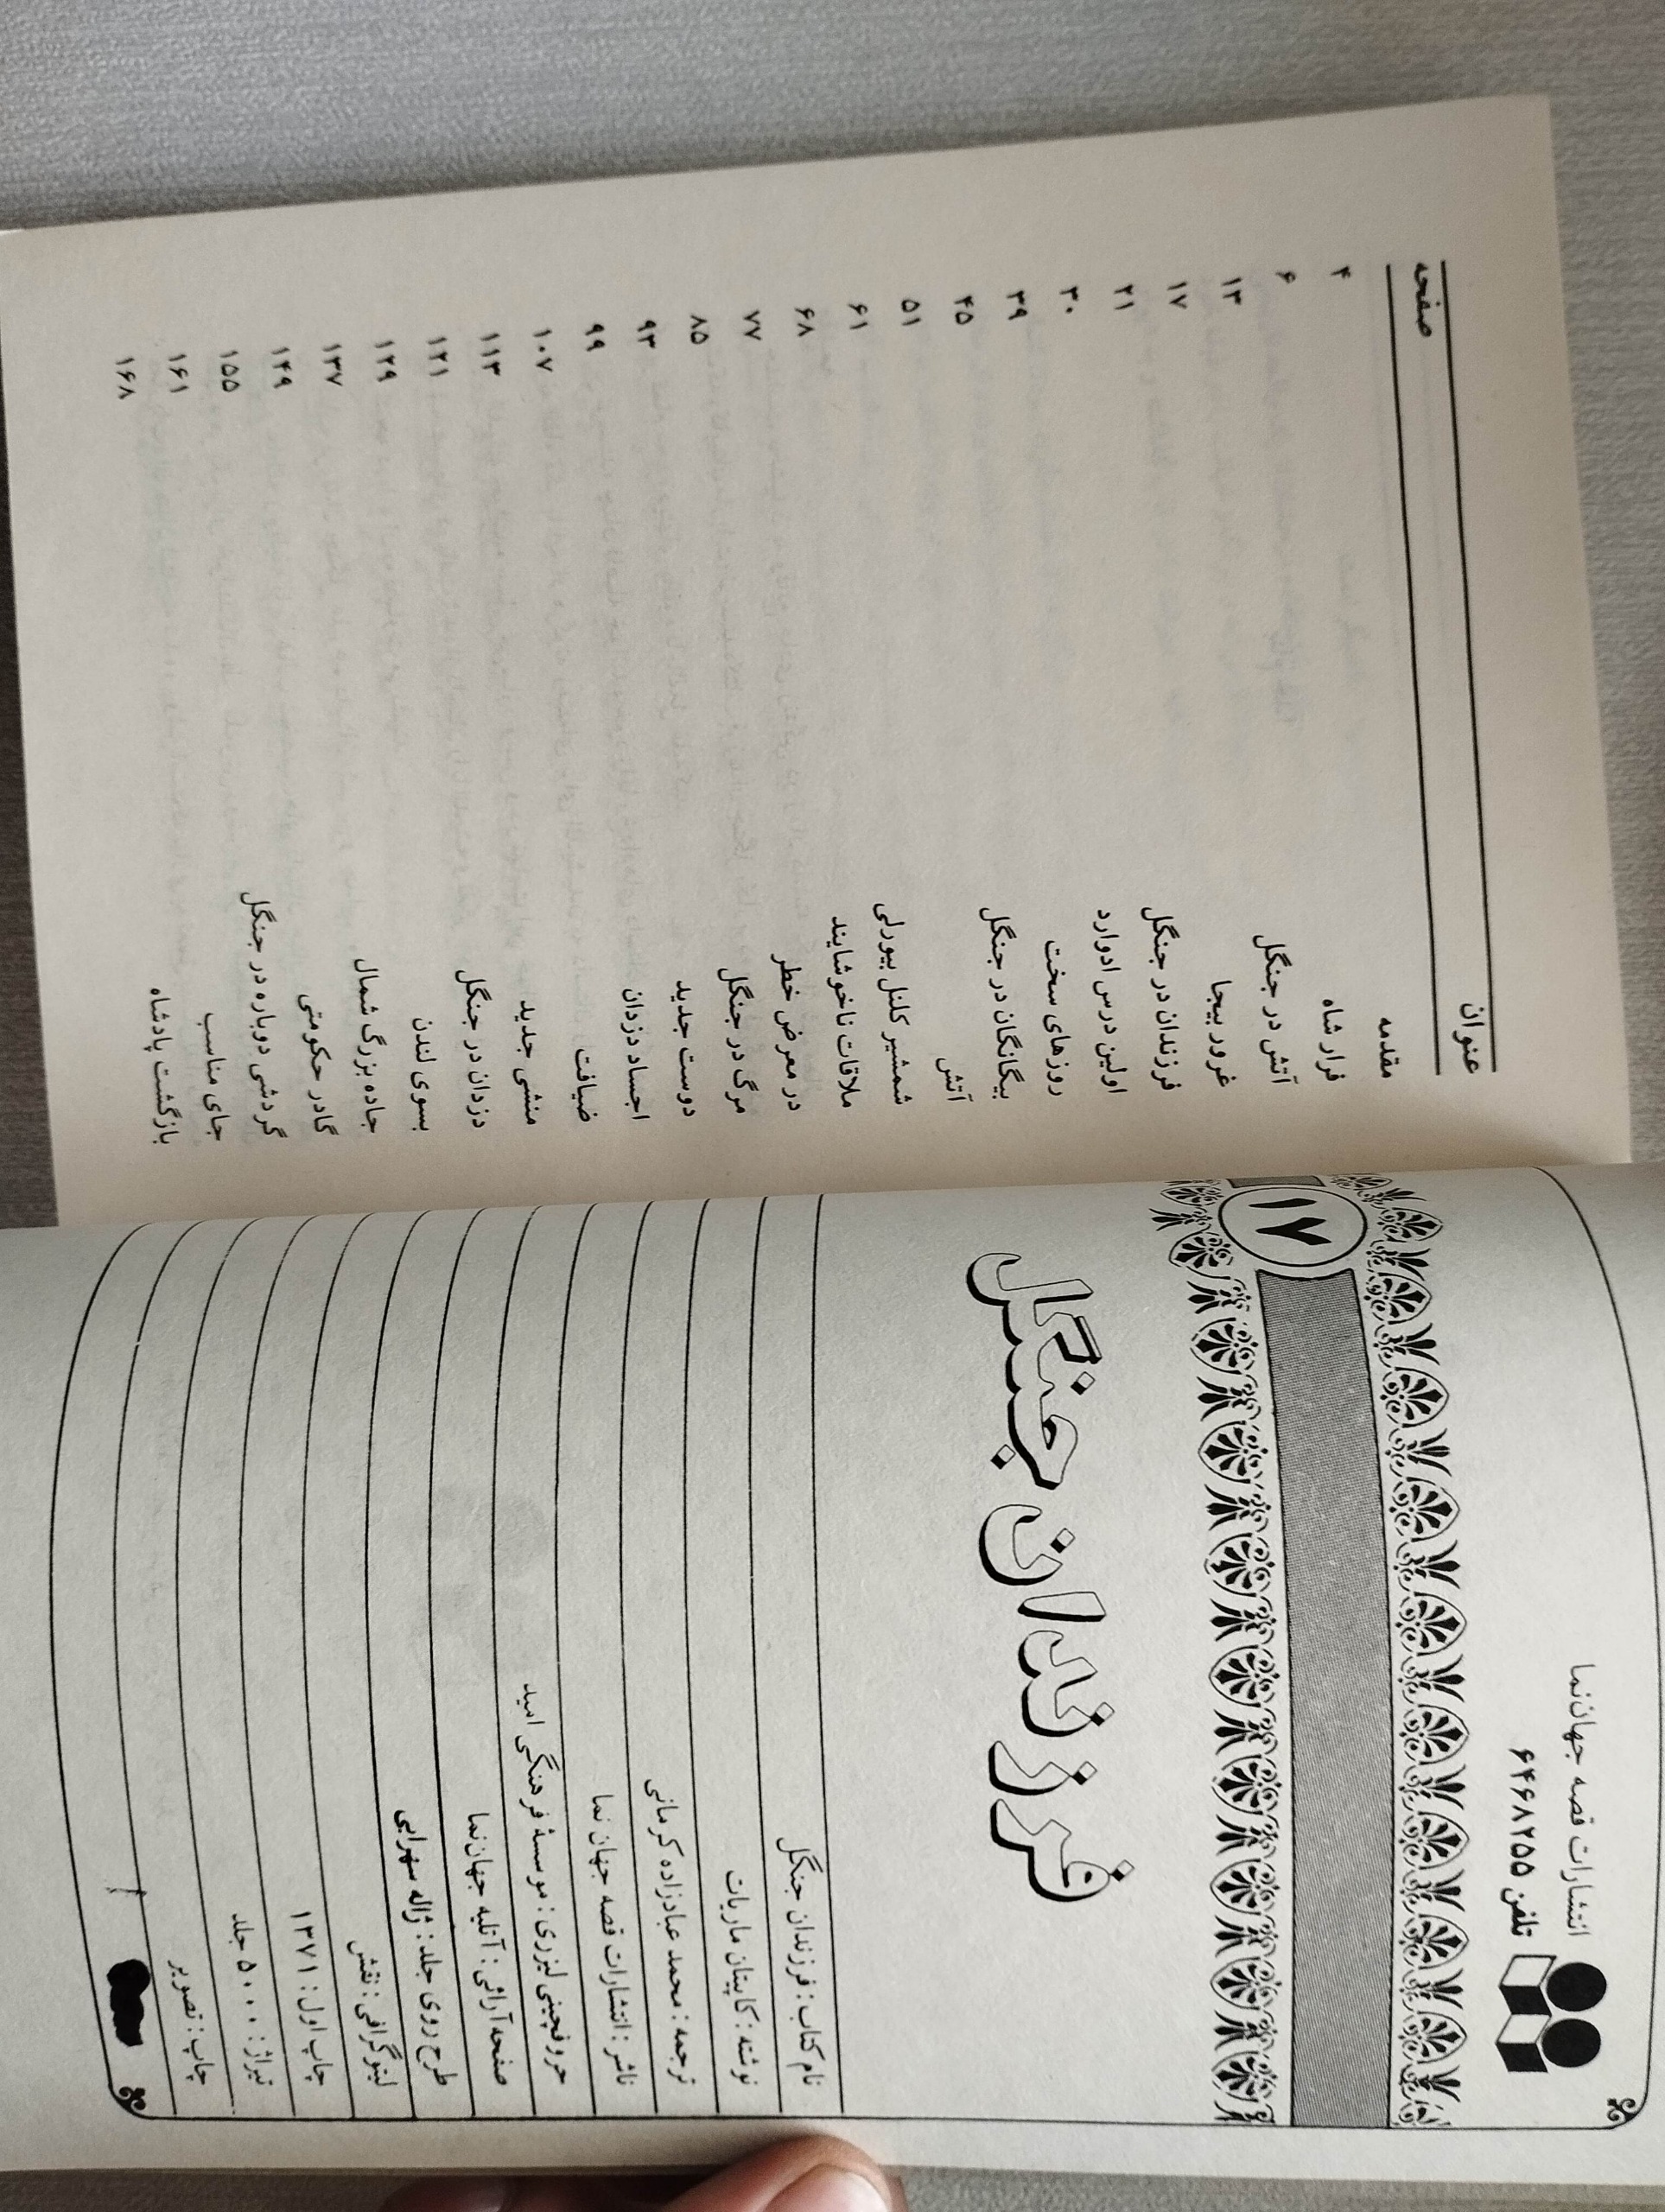 انتشارات قصه جهان‌نما
تلفن ۶۴۶۸۲۵۵
۱۷
فرزندان جنگل
نام کتاب: فرزندان جنگل
نوشته: کاپیتان ماریات
ترجمه: محمد عبادزاده کرمانی
ناشر: انتشارات قصه جهان نما
حروفچینی لیزری: موسسهٔ فرهنگی امید
صفحه‌آرائی: آتلیه جهان‌نما
طرح روی جلد: ژاله سهرابی
لیتوگرافی: نقش
چاپ اول: ۱۳۷۱
تیراژ: ۵۰۰۰ جلد
چاپ: تصویر
عنوان صفحه
مقدمه ۴
فرار شاه ۶
آتش در جنگل ۱۳
غرور بیجا ۱۷
فرزندان در جنگل ۲۱
اولین درس ادوارد ۳۰
روزهای سخت ۳۹
بیگانگان در جنگل ۴۵
آتش ۵۱
شمشیر کلنل بیورلی ۶۱
ملاقات ناخوشایند ۶۸
در معرض خطر ۷۷
مرگ در جنگل ۸۵
دوست جدید ۹۳
اجساد دزدان ۹۹
ضیافت ۱۰۷
منشی جدید ۱۱۳
دزدان در جنگل ۱۲۱
بسوی لندن ۱۲۹
جاده بزرگ شمال ۱۳۷
گادر حکومتی ۱۴۹
گردشی دوباره در جنگل ۱۵۵
جای مناسب ۱۶۱
بازگشت پادشاه ۱۶۸